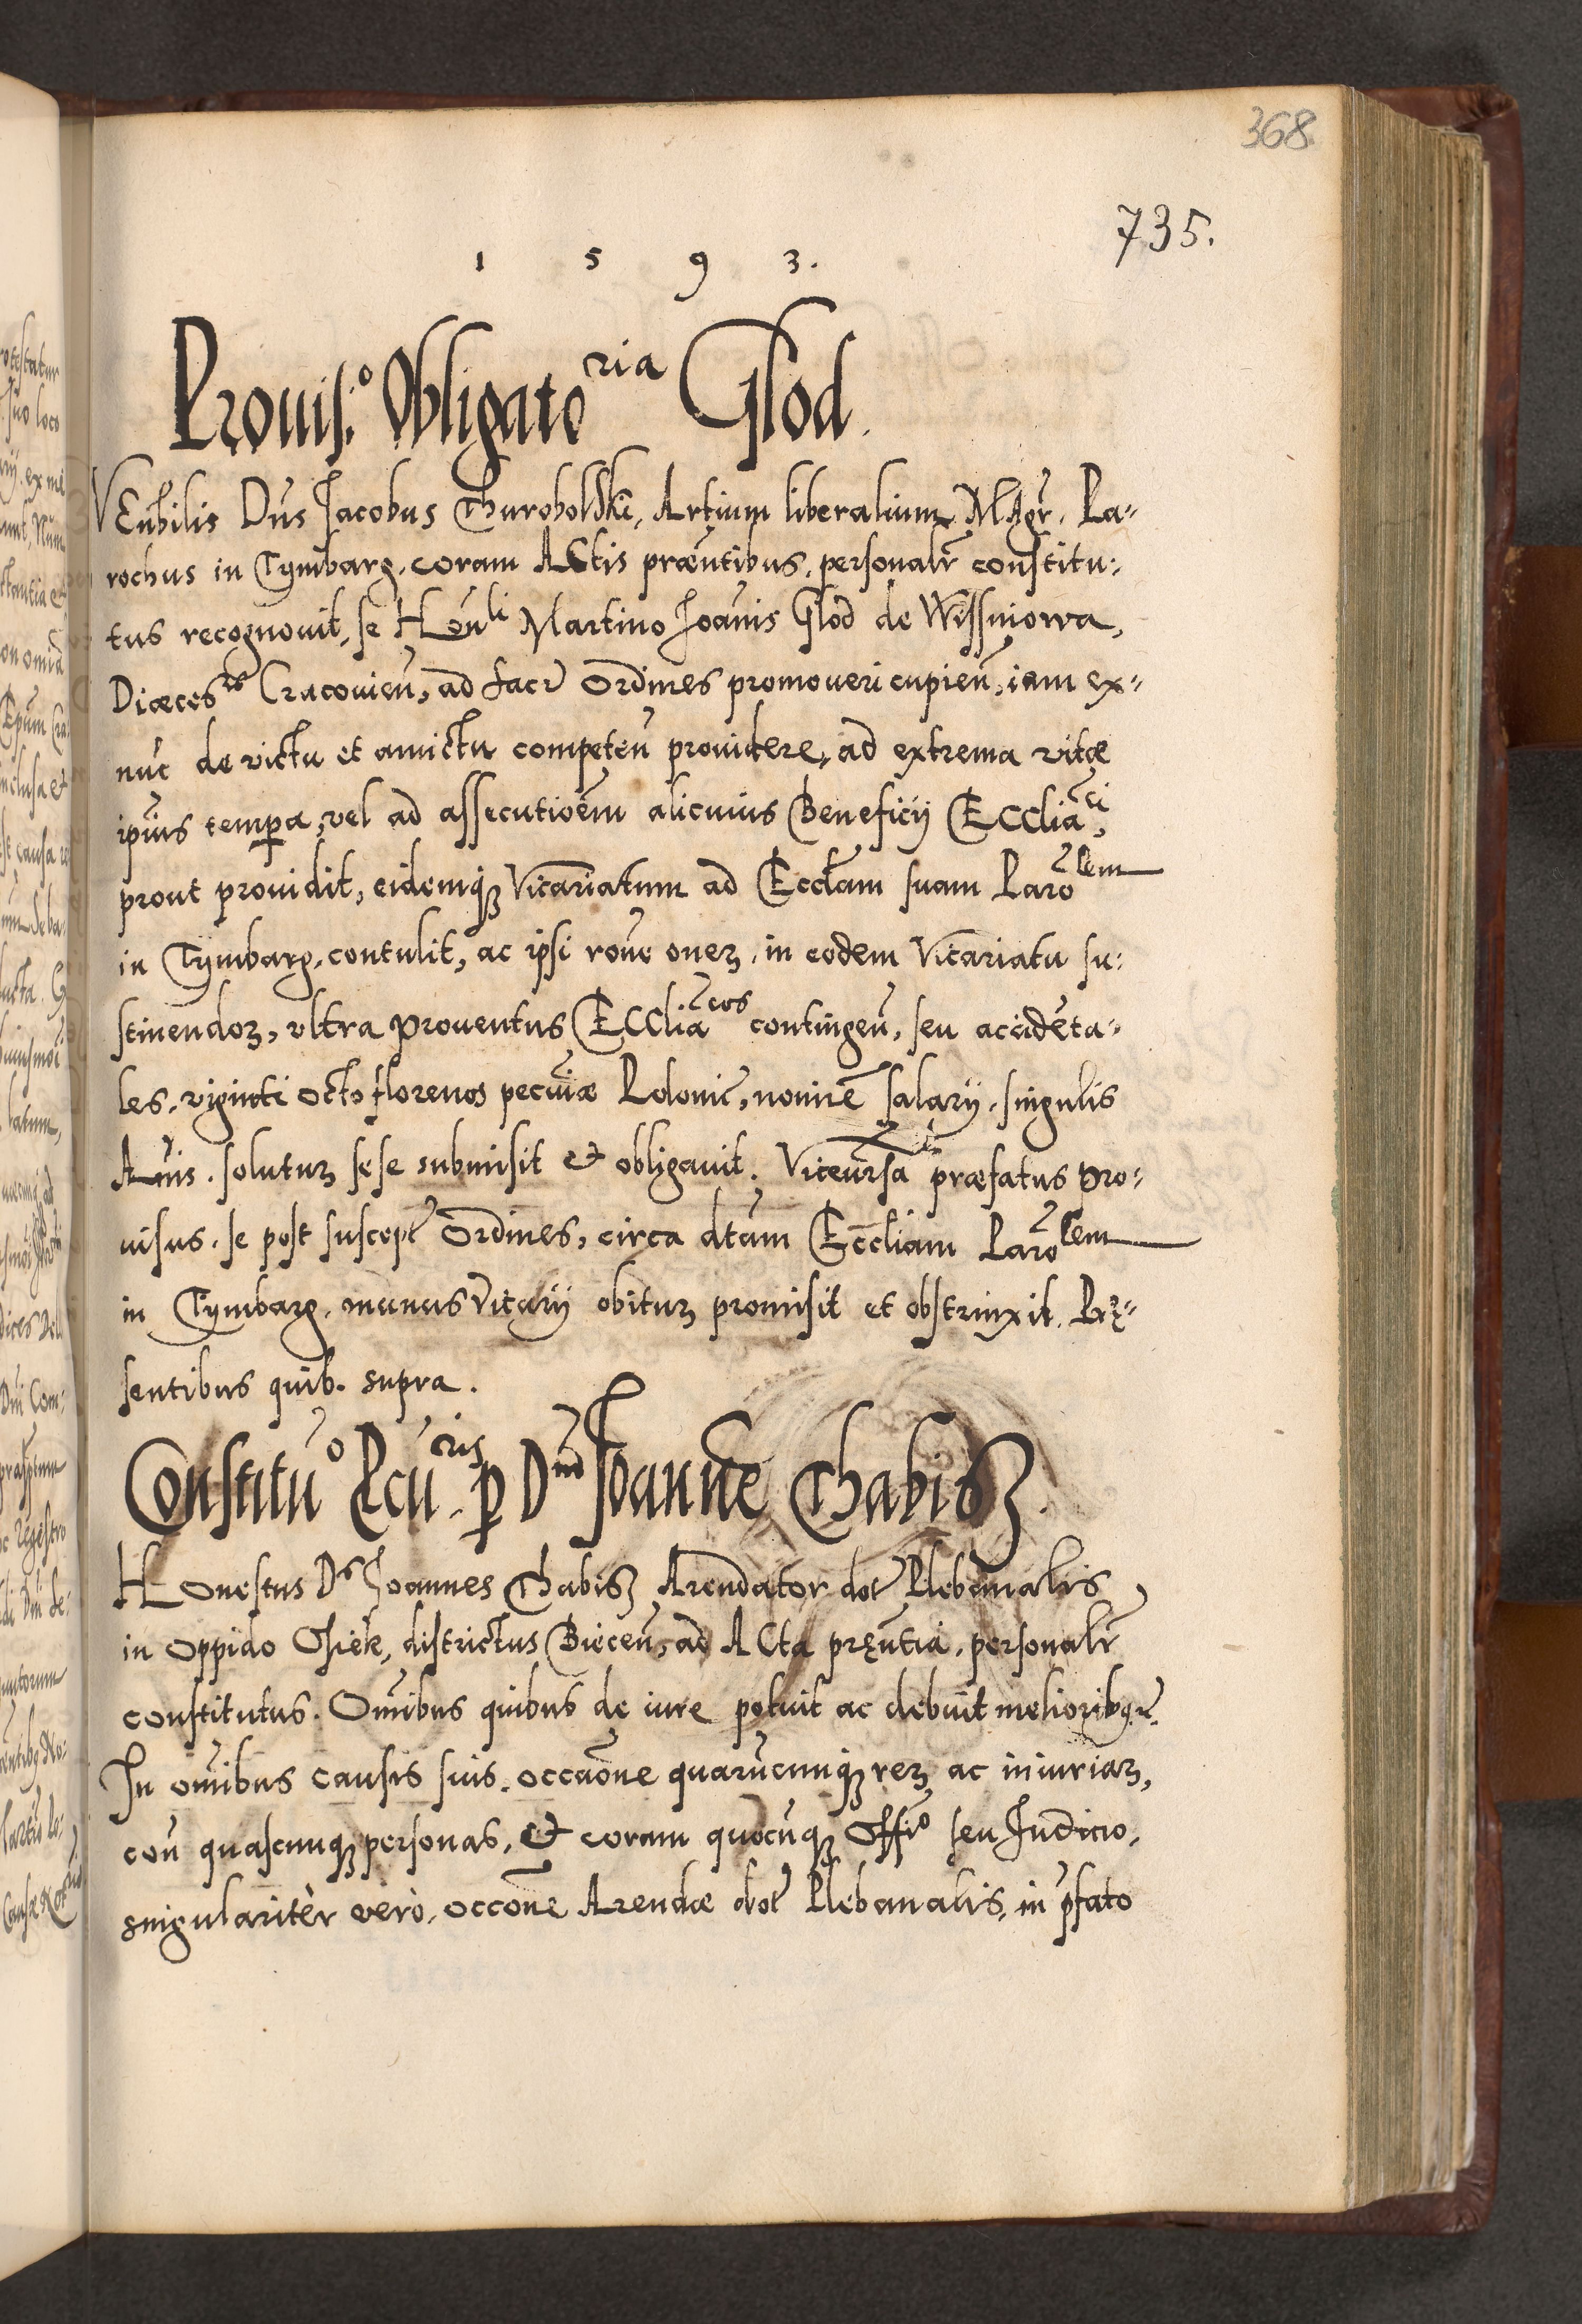 368
735.
1 5 9 3.
Prouis:o Obligatoria Glod.
VEnbilis Dns Jacobus Thurobolski, Artium liberalium MAgr. Pa-
rochus in Tymbarg. coram Actis præntibus. personalr constitu:
tus recognouit, se Honli Martino Joannis Glod de Wissniowa,
Diæcesis Cracouien, ad sacr Ordines promoueri cupien, iam ex-
nuc de victu et amictu competen prouidere, ad extrema vitæ
ipius tempa, vel ad assecutioem alicuius Beneficij Eccliaci,
prout prouidit, eidemq3 Vicariatum ad Ecclam suam Parolem
in Tymbarg. contulit, ac ipsi rone onez. in eodem Vicariatu su:
stinendoz, vltra prouentus Eccliacos contingen, seu accideta-
les, viginti octo florenos pecuniæ Polonic, nomine salarij. singulis
Annis. soluturz sese submisit et obligauit. Viceuersa præfatus pro-
uisus. se post suscept Ordines, circa dtam Eccliam Parolem
in Tymbarg. munus Vicarij obiturz promisit et obstrinxit. Præ-
sentibus quib. supra.
Constituo Pcuris. p Dnum Joannem Thabisz.
HOnestus Ds Joannes Thabisz Arendator dot Plebanalis
in oppido Osiek, districtus Biecen, ad Acta pręntia. personalr
constitutus. Omnibus quibus de iure potuit ac debuit melioribq. &c.
In omnibus causis suis. occaone quarucunq3 rez ac iniuriaz,
con quascunq3 personas. et coram quocunq3 Offio seu Judicio.
singulariter vero. occone Arendæ dot Plebanalis, in pfato